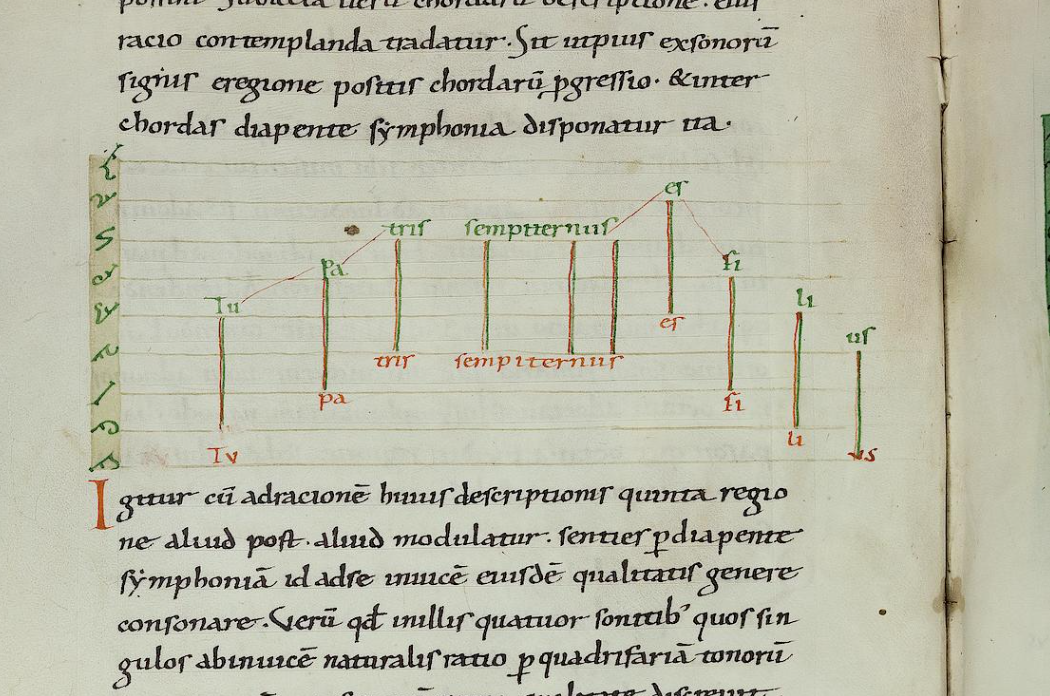 racio contemplanda tradatur. Sit utpius exsonorū
signis eregione positis chordarū ꝓgressio. &inter
chordas diapente sẏmphonia disponatur ita.
es
tris sempiternus
Pa fi
Tu li
us
es
tris sempiternus
pa fi
li
Tv us
Igitur cū adracionē huius descriptionis quinta regio
ne aliud post. aliud modulatur. senties ꝑdiapente
sẏmphoniā id adse inuicē eiusdē qualitatis genere
consonare. Verū qđ inillis quatuor sonitib' quos sin
gulos abinuicē naturalis ratio ꝑ quadrifariā tonorū